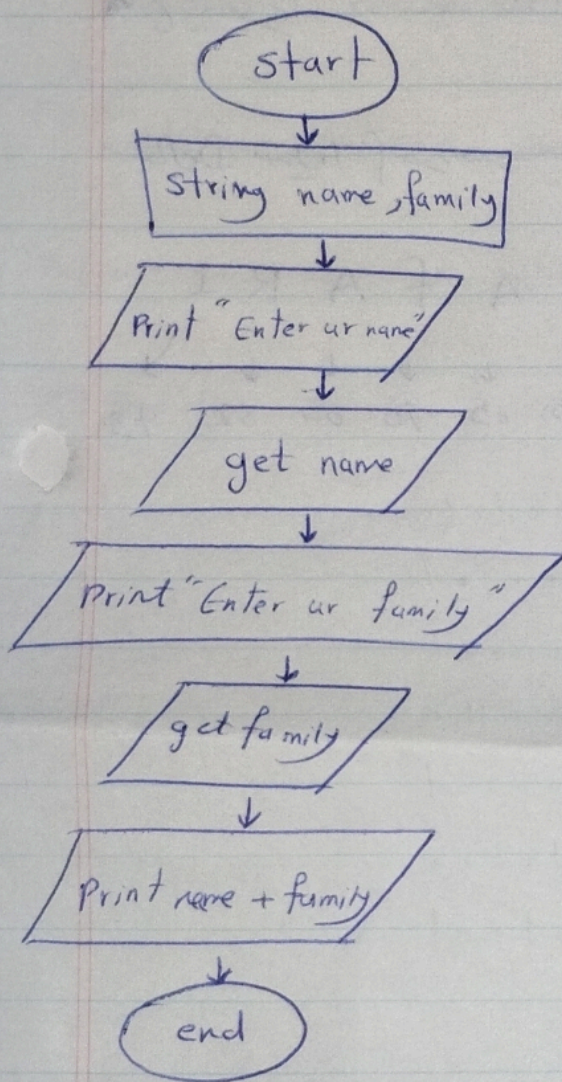 start
string name, family
Print "Enter ur name"
get name
Print "Enter ur family"
get family
Print name + family
end